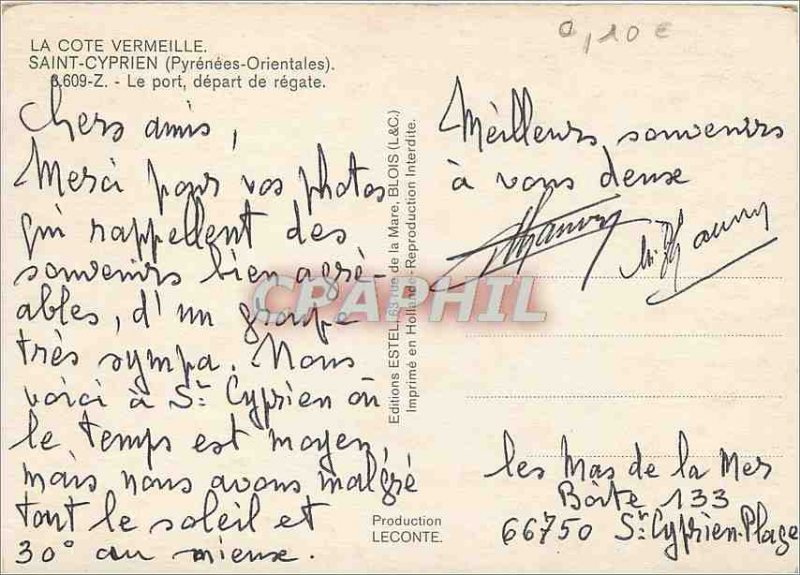 0,10 €
LA COTE VERMEILLE.
SAINT-CYPRIEN (Pyrénées-Orientales).
8.609-Z. - Le port, départ de régate.
Chers amis,
Merci pour vos photos
qui rappellent des
souvenirs bien agré-
ables, d'un groupe
très sympa. Nous
voici à St Cyprien où
le temps est moyen,
mais nous avons malgré
tout le soleil et
30° au mieux.
Editions ESTEL, 63 rue de la Mare, BLOIS (L&C.)
Imprimé en Hollande - Reproduction Interdite.
Production
LECONTE.
Meilleurs souvenirs
à vous deux
les Mas de la Mer
Boîte 133
66750 St Cyprien-Plage
CPAPHIL